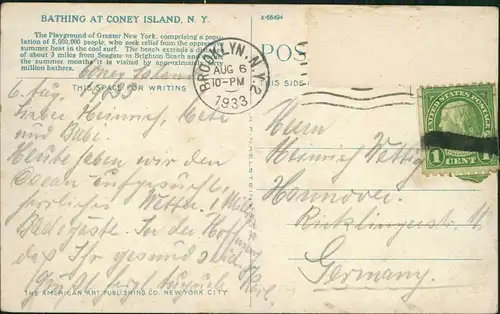 BATHING AT CONEY ISLAND, N. Y.
The Playground of Greater New York, comprising a popu-
lation of 5,900,000 people, who seek relief from the oppressi
summer heat in the cool surf. The beach extends a dist
of about 3 miles from Seagate to Brighton Beach and
the summer months it is visited by approximate
million bathers.
A-66494
POS
THIS SPACE FOR WRITING
THIS SIDE
BROOKLYN, N.Y. 2
AUG 6
10-PM
1933
UNITED STATES POSTAGE
1 CENT 1
Coney Island
6. Aug. 1933
Lieber Heinrich, Meta
und Bubi.
Heute haben wir den
Ozean aufgesucht,
herrliches Wetter, 1 Million
Badegäste. In der Hoff
das Ihr gesund seid
Grüßt Euch August
Herrn
Heinrich Wettig
Hannover.
Ricklingerstr.
Germany.
THE AMERICAN ART PUBLISHING CO. NEW YORK CITY